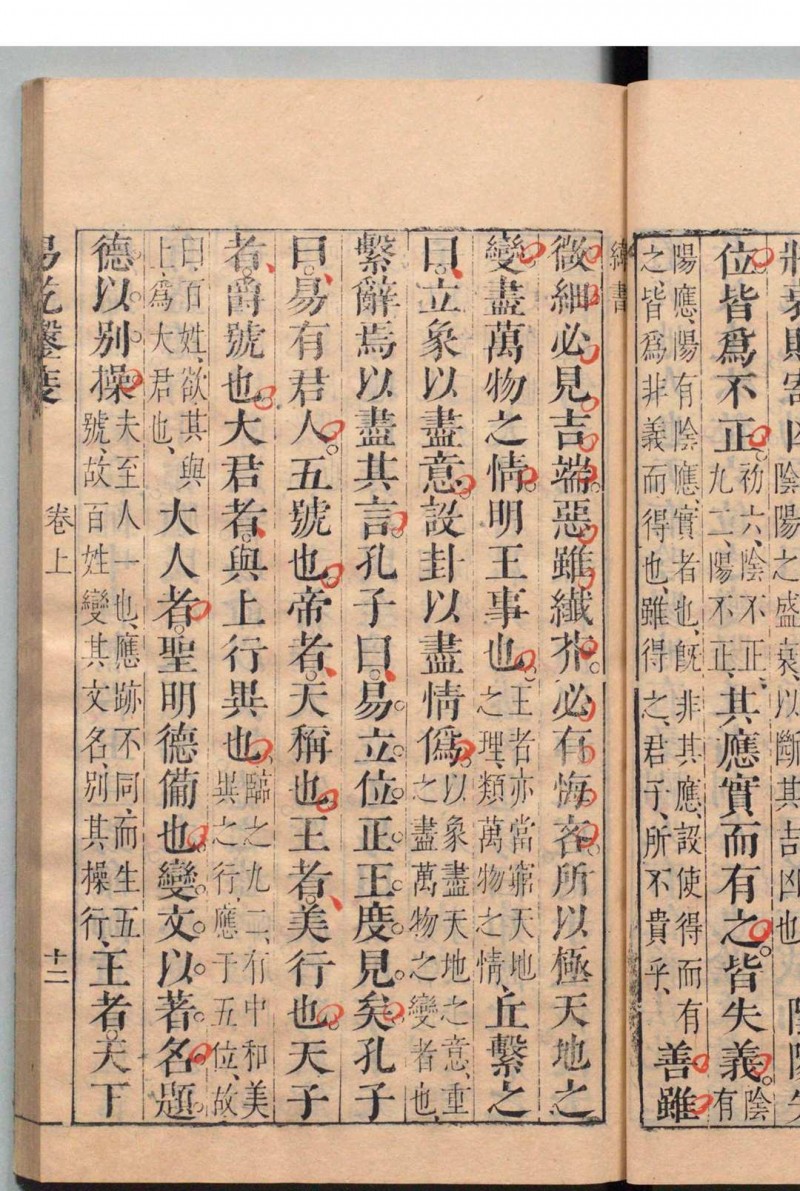 將衰則寄凶陰陽之盛衰以斷其吉凶也
位皆為不正初六、陰不正、九二、陽不正、其應實而有之。皆失義。陰有
陽應、陽有陰應、實者也、既非其應、設使得而有之、皆為非義而得也、雖得之、君子所不貴乎、善雖
緯書
微細必見吉端。惡雖纖芥。必有悔吝。所以極天地之
變盡萬物之情明王事也。王者亦當窮天地之理、類萬物之情、丘繫之
曰、立象以盡意設卦以盡情偽。以象盡天地之意、重之盡萬物之變者也、
繫辭焉以盡其言孔子曰。易。立。位。正。王。度。見。矣。孔子
曰。易有君人五號也。帝者。天稱也。王者。美行也。天子
者。爵號也。大君者。與上行異也。臨之九二、有中和美異之行、應于五位、故
曰、百姓欲其與上為大君也、大人者。聖明德備也。變。文。以。著。名。題。
德。以。別。操。夫至人一也、應跡不同、而生五號、故百姓變其文名、別其操行、王者。天下
易乾鑿度
卷上
十二